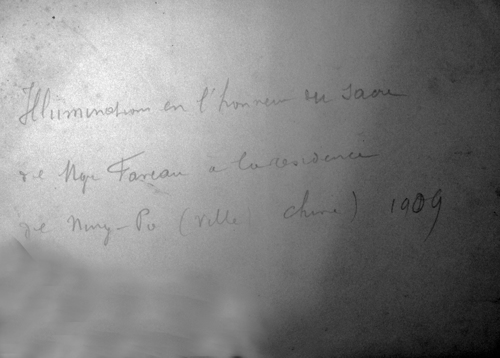 Illumination en l'honneur du Sacre
de Mgr Faveau a la residence
de Ning-Po (ville chine) 1909